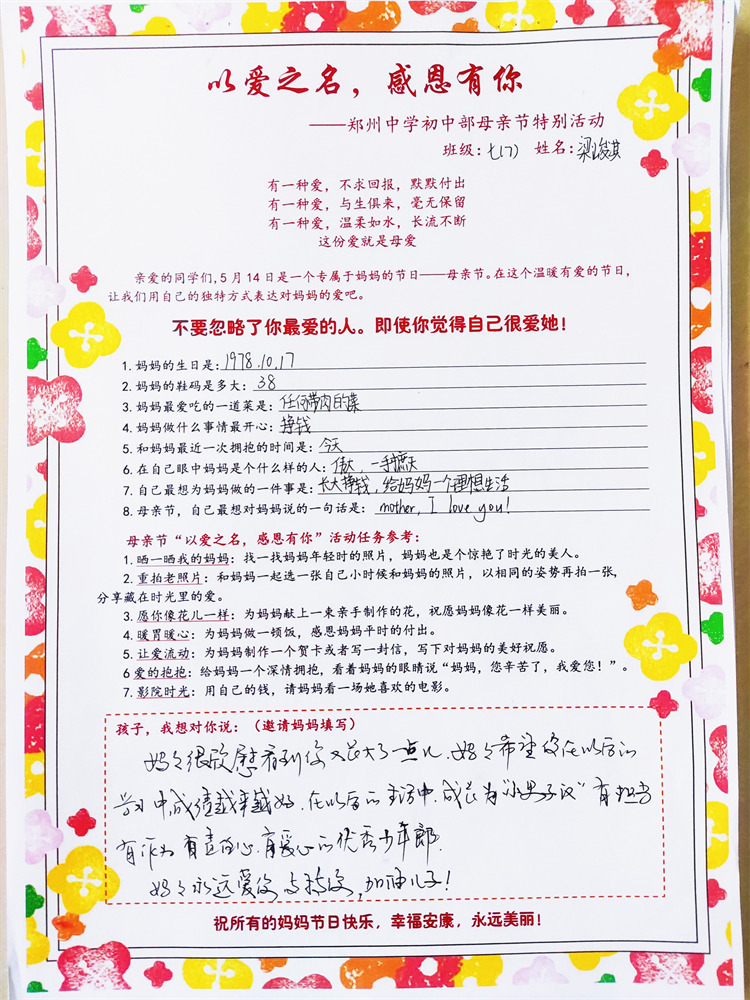 以爱之名，感恩有你
——郑州中学初中部母亲节特别活动
班级：七(7) 姓名：梁峻淇
有一种爱，不求回报，默默付出
有一种爱，与生俱来，毫无保留
有一种爱，温柔如水，长流不断
这份爱就是母爱
亲爱的同学们，5月14日是一个专属于妈妈的节日——母亲节。在这个温暖有爱的节日，
让我们用自己的独特方式表达对妈妈的爱吧。
不要忽略了你最爱的人。即使你觉得自己很爱她！
1. 妈妈的生日是：1978.10.17
2. 妈妈的鞋码是多大：38
3. 妈妈最爱吃的一道菜是：任何带肉的菜
4. 妈妈做什么事情最开心：挣钱
5. 和妈妈最近一次拥抱的时间是：今天
6. 在自己眼中妈妈是个什么样的人：伟大，一手遮天
7. 自己最想为妈妈做的一件事是：长大挣钱，给妈妈一个理想生活
8. 母亲节，自己最想对妈妈说的一句话是：mother, I love you!
母亲节“以爱之名，感恩有你”活动任务参考：
1. 晒一晒我的妈妈：找一找妈妈年轻时的照片，妈妈也是个惊艳了时光的美人。
2. 重拍老照片：和妈妈一起选一张自己小时候和妈妈的照片，以相同的姿势再拍一张，
分享藏在时光里的爱。
3. 愿你像花儿一样：为妈妈献上一束亲手制作的花，祝愿妈妈像花一样美丽。
4. 暖胃暖心：为妈妈做一顿饭，感恩妈妈平时的付出。
5. 让爱流动：为妈妈制作一个贺卡或者写一封信，写下对妈妈的美好祝愿。
6 爱的抱抱：给妈妈一个深情拥抱，看着妈妈的眼睛说“妈妈，您辛苦了，我爱您！”。
7. 影院时光：用自己的钱，请妈妈看一场她喜欢的电影。
孩子，我想对你说：（邀请妈妈填写）
妈妈很欣慰看到你又长大了一点儿.妈妈希望你在以后的
学习中成绩越来越好.在以后的生活中.成长为“小男子汉”有担当
有作为 有责的心.有爱心的优秀少年郎.
妈妈永远爱你 支持你,加油儿子!
祝所有的妈妈节日快乐，幸福安康，永远美丽！